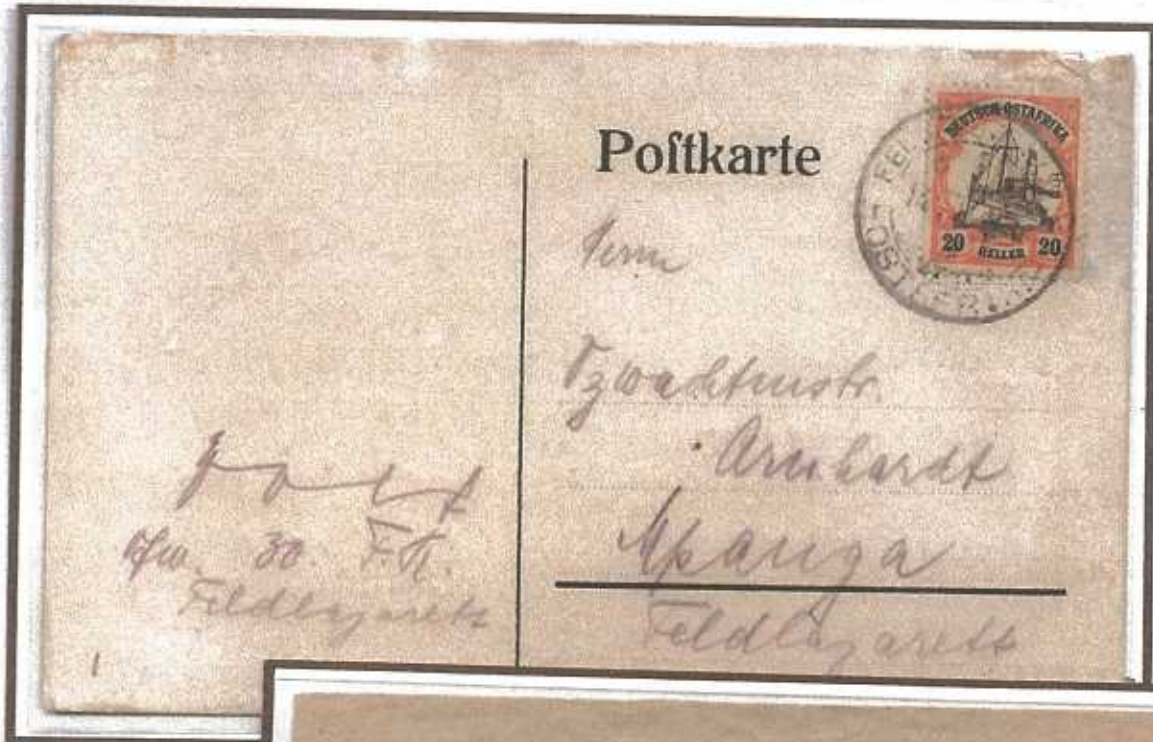 Postkarte
DEUTSCH-OSTAFRIKA
20 HELLER 20
Herrn
Vzwachtmstr.
Arnhardt
Mpanga
Feldlazarett
30. F.K.
Feldlazarett
1